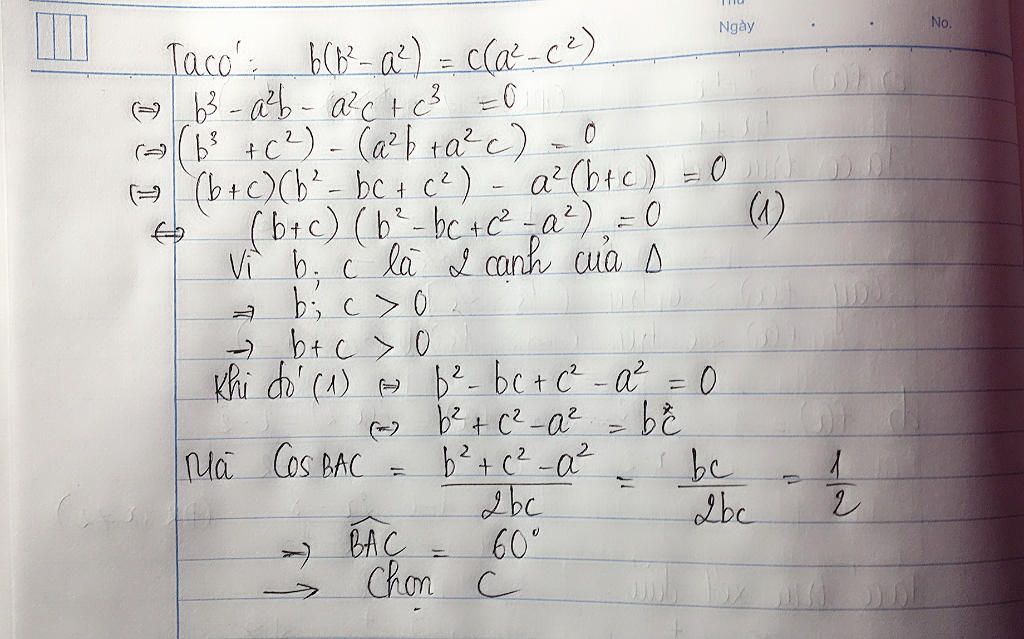 Thứ
Ngày . . No.
Ta có: b(b² - a²) = c(a² - c²)
(=) b³ - a²b - a²c + c³ = 0
(=) (b³ + c²) - (a²b + a²c) = 0
(=) (b+c)(b² - bc + c²) - a²(b+c) = 0
<=> (b+c)(b² - bc + c² - a²) = 0 (1)
Vì b; c là 2 cạnh của Δ
=> b; c > 0
-> b+c > 0
Khi đó (1) (=) b² - bc + c² - a² = 0
(=) b² + c² - a² = bc
Mà Cos BAC = (b² + c² - a²)/2bc = bc/2bc = 1/2
=> \widehat{BAC} = 60°
-> Chọn C